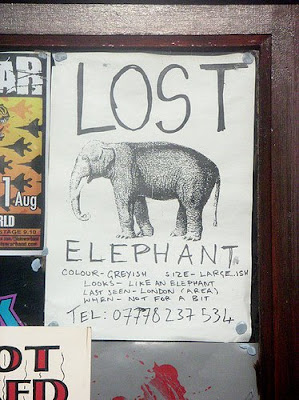 LOST
ELEPHANT
COLOUR- GREYISH SIZE- LARGE.ISH
LOOKS- LIKE AN ELEPHANT
LAST SEEN- LONDON (AREA)
WHEN- NOT FOR A BIT
TEL: 07778 237 534
AR
1 Aug
STAGE 9.10
RLD
OT
ED